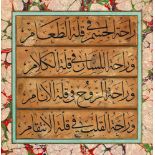 راحة الجسم في قلة الطعام
وراحة اللسان في قلة الكلام
وراحة الروح في قلة الآثام
وراحة القلب في قلة الاهتمام